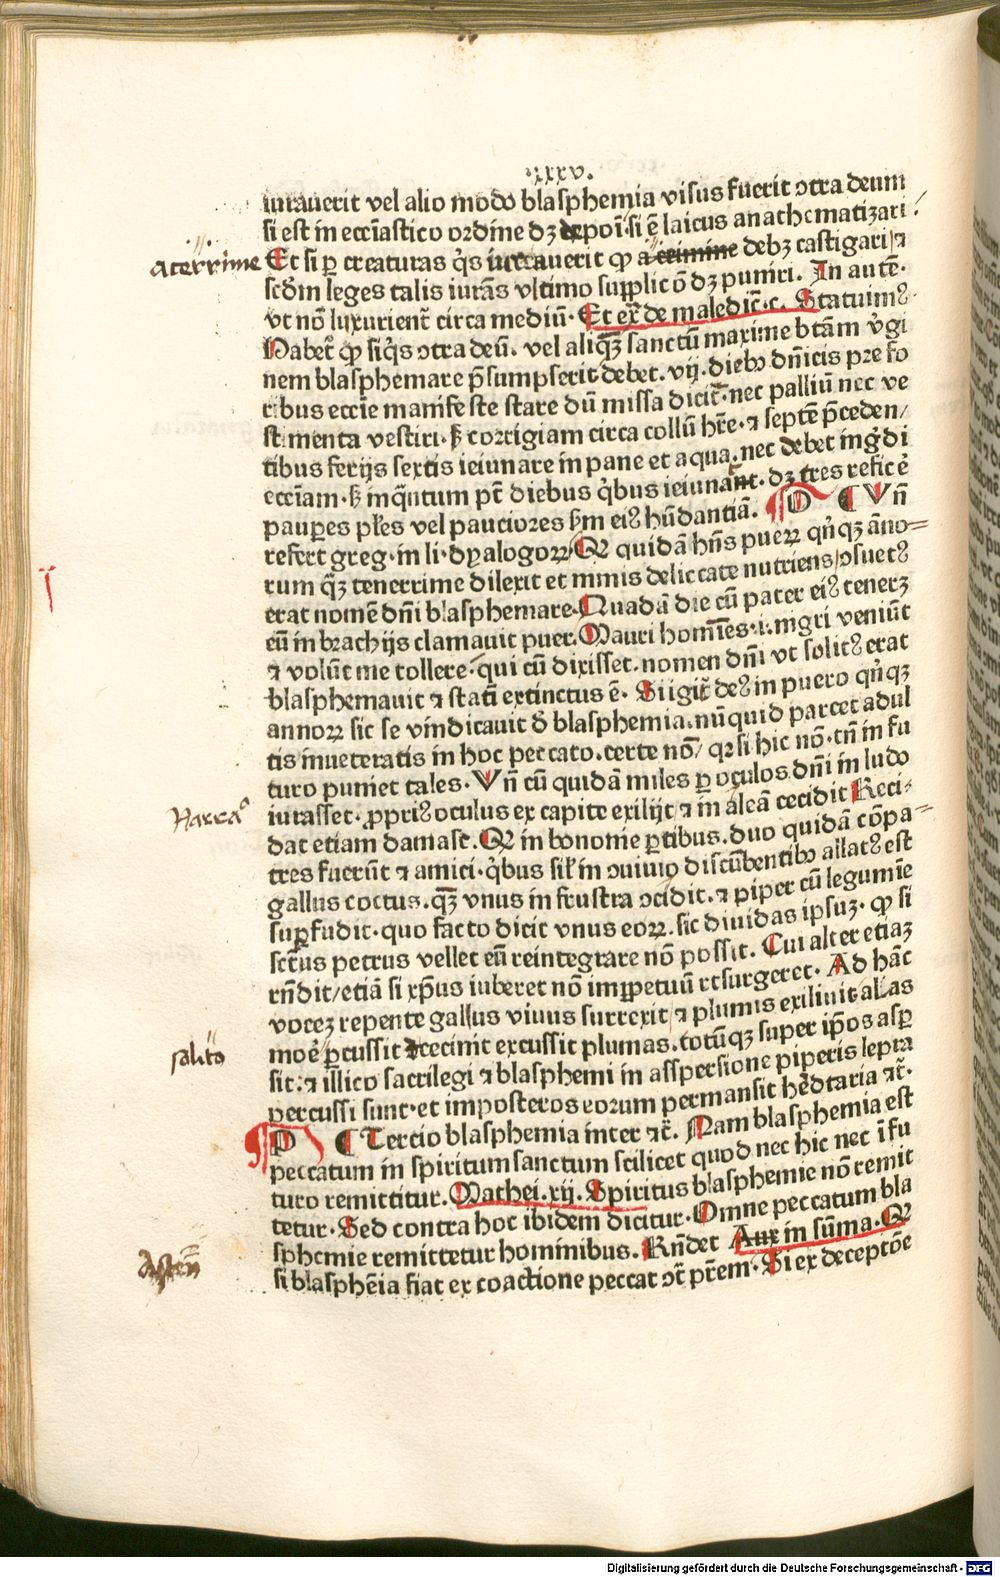 .xxxv.
iurauerit vel alio modo blasphemia visus fuerit ɔtra deum
si est in ecc̄iastico ordine dꝫ depoī·si ē laicus anathematizari
acerrime
Et si ꝑ creaturas q̇s iurauerit ꝙ a crimine debꝫ castigari/⁊
scd̄m leges talis iurās vltimo supplicō dꝫ puniri. In autē·
vt nō luxurient̄ circa mediū· Et ex̄ de maledic̄·c. Statuimꝰ
Habet̄ ꝙ siq̇s ɔtra deū. vel aliqꝫ sanctū maxime btām v̓gi
nem blasphemare p̄sumpserit debet. vij. diebꝰ dn̄icis pre fo
ribus eccīe manifeste stare dū missa dicit̄· nec palliū nec ve
stimenta vestiri· sꝫ corrigiam circa collū hr̄e· ⁊ septē p̄ceden/
tibus ferijs sextis ieiunare in pane et aqua. nec debet ingr̄di
ecc̄iam· sꝫ inq̄ntum pt̄ diebus q̇bus ieiunant̄· dꝫ tres reficē
pauꝑes ꝓles vel pauciores sm̄ eiꝰ hn̄dantiā. ¶ O ¶ Vn̄
refert greg· in li· dyalogoꝝ Ꝙ quidā hn̄s pueꝝ qn̄qꝫ āno-
rum qꝫ tenerrime dilexit et nimis deliccate nutriens/ɔsuetꝰ
erat nomē dn̄i blasphemare Quadā die cū pater eiꝰ tenerꝫ
eū in brachijs clamauit puer. Mauri hoīes·i·nigri veniūt
⁊ volūt me tollere· qui cū dixisset· nomen dn̄i vt solitꝰ erat
blasphemauit ⁊ statī extinctus ē· Si igit̄ deꝰ in puero qn̄qꝫ
annoꝝ sic se vindicauit d̄ blasphemia. nūquid parcet adul
tis inueteratis in hoc peccato. certe nō/ qꝛ si hic nō· tn̄ in fu
turo puniet tales· Vn̄ cū quidā miles ꝑ oculos dn̄i in ludo
Narraᵒ
iurasset· ꝓpriꝰ oculus ex capite exilijt ⁊ in aleā cecidit Reci-
dat etiam damasc̄. Ꝙ in bononie ꝑtibus. duo quidā cōpa-
tres fuerūt ⁊ amici· q̇bus sil̄ in ɔuiuio discūbentibꝰ allatꝰ est
gallus coctus. qꝫ vnus in frustra ɔcidit. ⁊ piper cū legumīe
suꝑfudit· quo facto dicit vnus eoꝝ. sic diuidas ipsuꝫ· ꝙ si
sctūs petrus vellet eū reintegrare nō possit. Cui alter etiaꝫ
rn̄dit/etiā si xp̄us iuberet nō imꝑpetuū resurgeret· Ad hāc
voceꝫ repente gallus viuus surrexit/ ⁊ plumis exiliuit alas
salito
moē ꝑcussit ⁊ cecinit excussit plumas. totūqꝫ super ip̄os asꝑ
sit: ⁊ illico sacrilegi ⁊ blasphemi in asspersione piperis lepra
percussi sunt· et imposteros eorum permansit hēdtaria ⁊c̄.
¶ P ¶ Tercio blasphemia inter ⁊c̄. Nam blasphemia est
peccatum in spiritum sanctum scilicet quod nec hic nec ī fu
turo remittitur. Mathei.xij. Spiritus blasphemie nō remit
tetur· Sed contra hoc ibidem dicitur· Omne peccatum bla
sphemie remittetur hominibus. Rn̄det Aux in sūma· Ꝙ
Asten̄
si blasphēia fiat ex coactione peccat ɔt̄ pr̄em· Si ex deceptōe
Digitalisierung gefördert durch die Deutsche Forschungsgemeinschaft - DFG